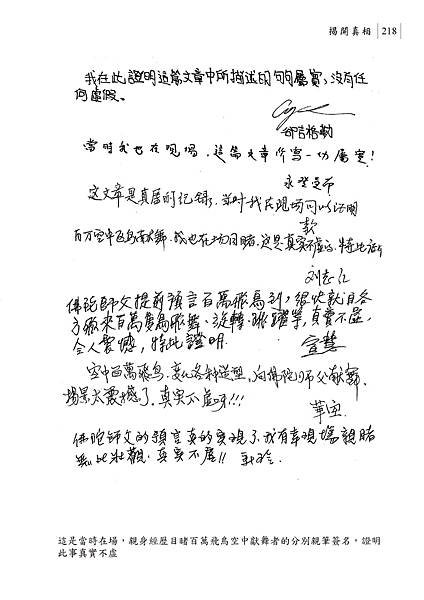 揭開真相 218
我在此證明這篇文章中所描述的句句屬實，沒有任
何虛假。
當時我也在現場，這篇文章所寫一切屬實！
这文章是真实的记录，当时我在现场可以证明
百万空中飞鸟献舞，我也在场目睹，这是真实不虛的，特此证
刘志江
佛陀師父提前預言百萬飛鳥到，很快就目各
方飛來百萬隻鳥飛舞、旋轉、跳躍等，真實不虛，
令人震憾，特此證明。
宣慧
空中百萬飛鳥，变化各种造型，向佛陀师父献舞，
場景太震撼了。真实不虛呀!!!
佛陀師父的預言真的實現了，我有幸現場親睹
無比壯觀，真實不虛!!
這是當時在場，親身經歷目睹百萬飛鳥空中獻舞者的分別親筆簽名，證明
此事真實不虛